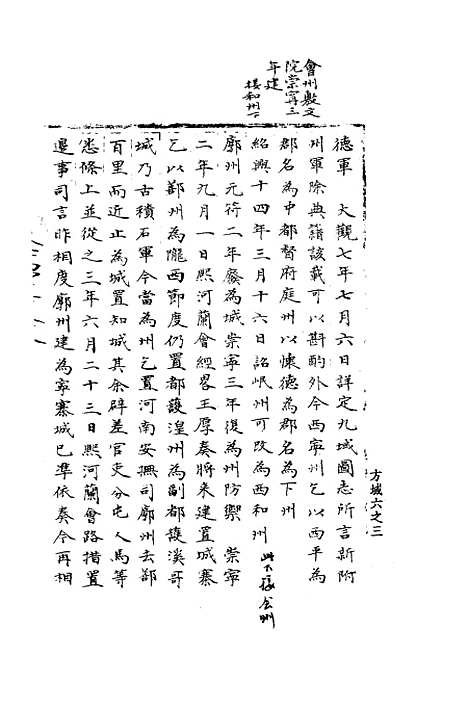 會州敷文
院崇寧三
年建
接和州下
德軍　大觀七年七月六日詳定九域圖志所言新附
州軍除典籍該載可以斟酌外今西寧州乞以西平為
郡名為中都督府庭州以懷德為郡名為下州
紹興十四年三月十六日詔岷州可改為西和州
此下接會州
廓州元符二年廢為城崇寧三年復為州防禦　崇寧
二年九月一日熙河蘭會經畧王厚奏將來建置城寨
乞以鄯州為隴西節度仍置都護湟州為副都護溪哥
城乃古積石軍今當為州乞置河南安撫司廓州去鄯
百里而近止為城置知城其余辟差官吏分屯人馬等
悉條上並從之三年六月二十三日熙河蘭會路措置
邊事司言昨相度廓州建為寧寨城已準依奏今再相
方域六之三